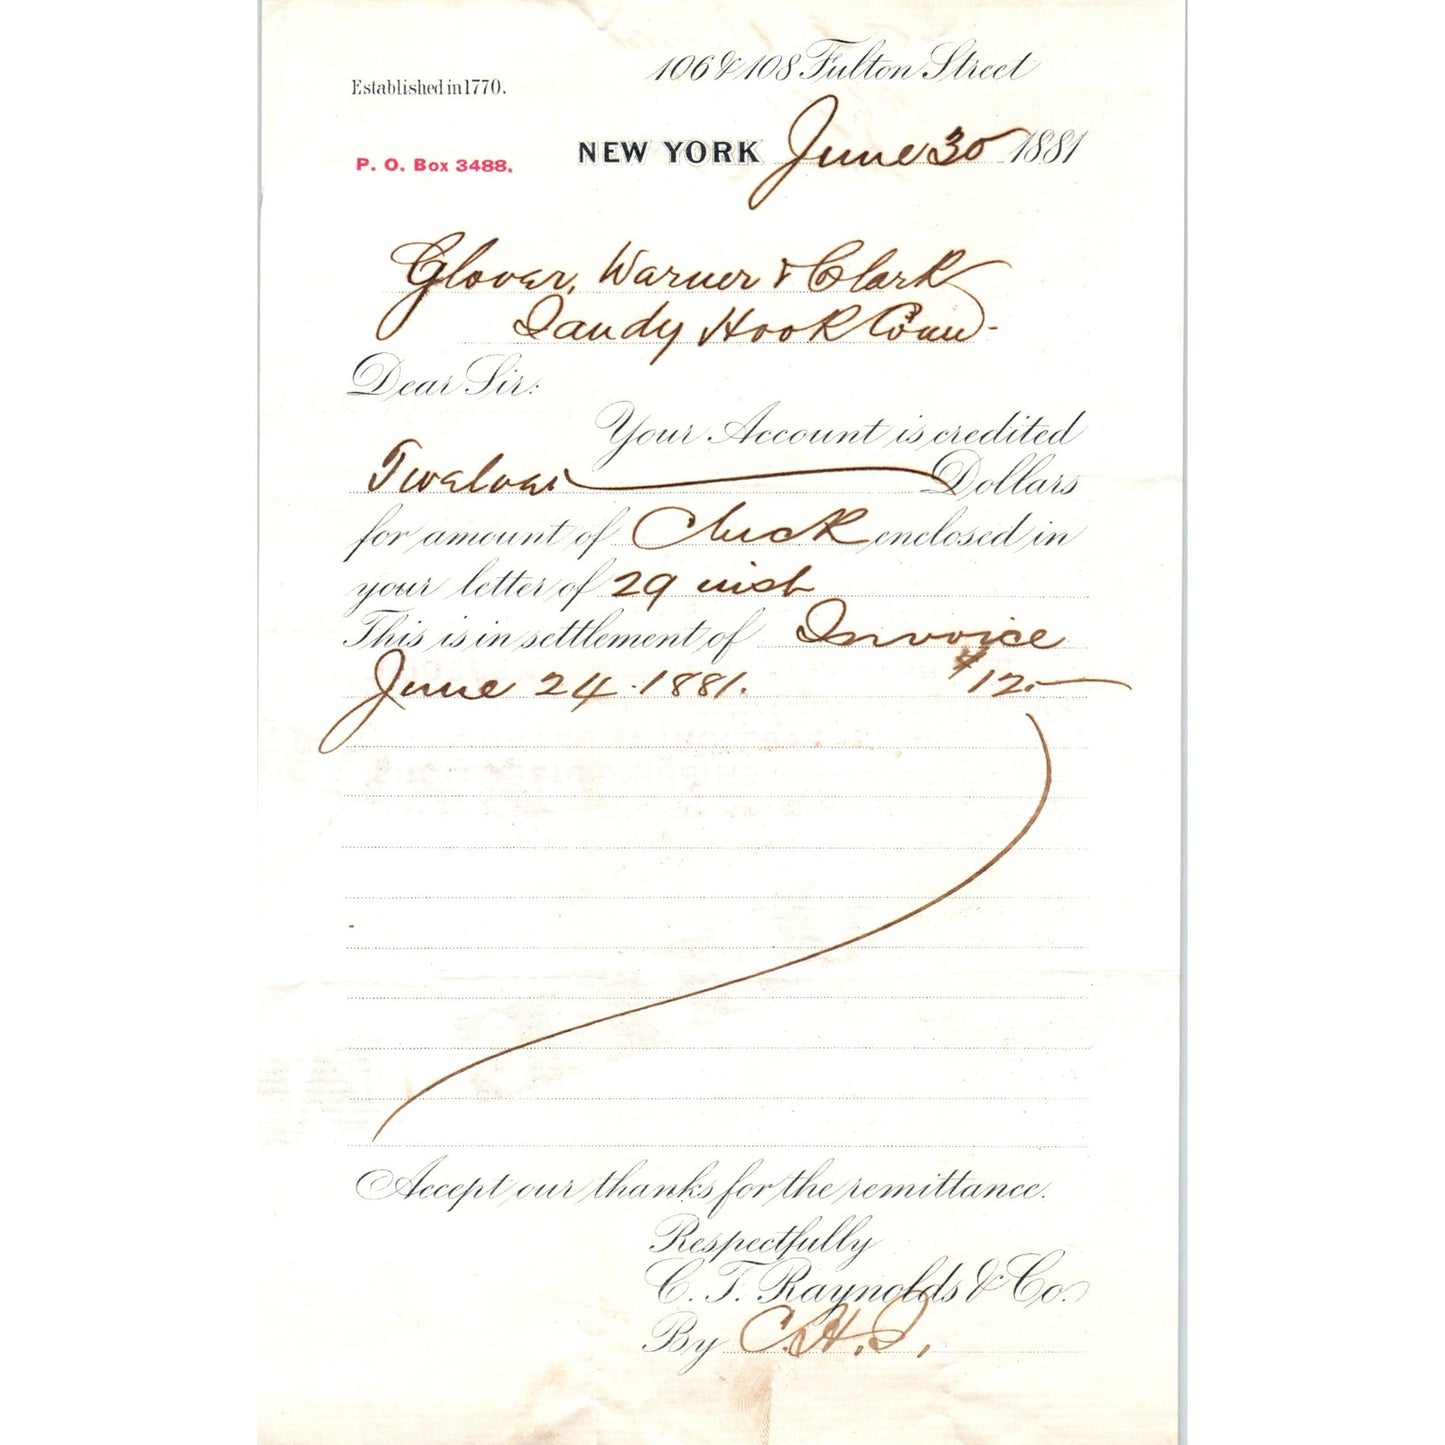 106 & 108 Fulton Street
Established in 1770.
P. O. Box 3488.
NEW YORK June 30 1881
Glover, Warner & Clark
Sandy Hook Conn-
Dear Sir:
Your Account is credited
Twelve Dollars
for amount of Check enclosed in
your letter of 29 inst
This is in settlement of Invoice
June 24. 1881. $12.—
Accept our thanks for the remittance.
Respectfully
C. T. Raynolds & Co.
By